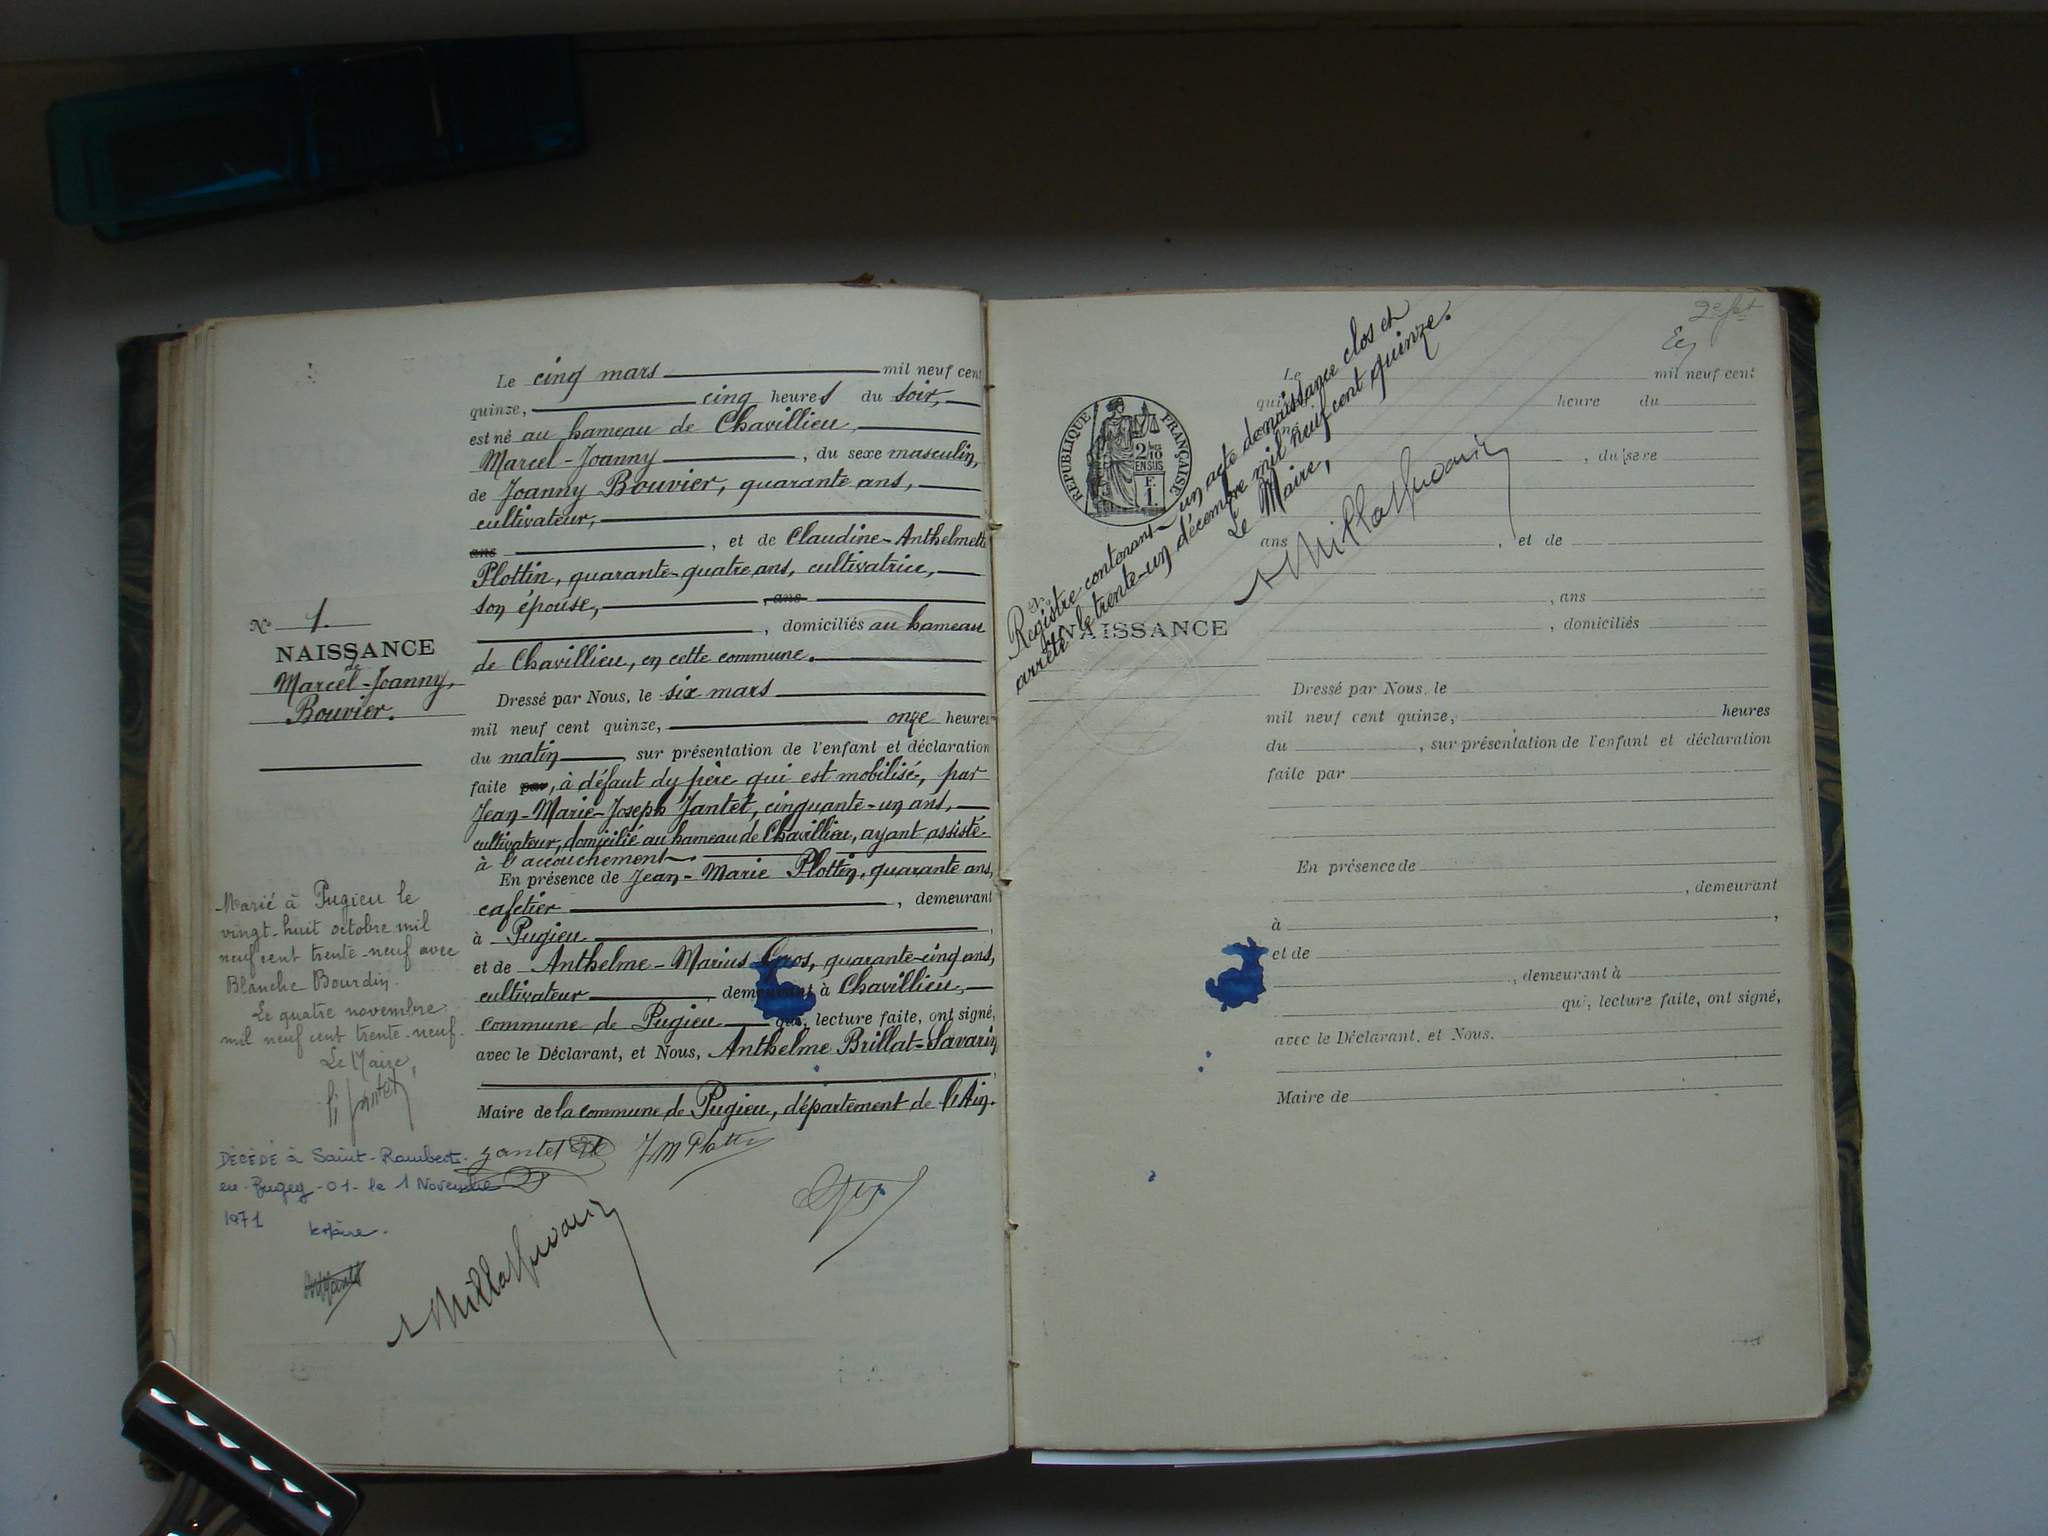 Le cinq mars mil neuf cent
quinze, cinq heures du soir,
est né au hameau de Chavillieu,
Marcel-Joanny, du sexe masculin,
de Joanny Bouvier, quarante ans,
cultivateur,
ans, et de Claudine-Anthelmette
Plottin, quarante-quatre ans, cultivatrice,
son épouse, ans
, domiciliés au hameau
de Chavillieu, en cette commune.
Dressé par Nous, le six mars
mil neuf cent quinze, onze heures
du matin, sur présentation de l'enfant et déclaration
faite par, à défaut du père qui est mobilisé, par
Jean-Marie-Joseph Jantet, cinquante-un ans,
cultivateur, domicilié au hameau de Chavillieu, ayant assisté
à l'accouchement.
En présence de Jean-Marie Plottin, quarante ans,
cafetier, demeurant
à Pugieu,
et de Anthelme-Marius Gros, quarante-cinq ans,
cultivateur, demeurant à Chavillieu,
commune de Pugieu qui, lecture faite, ont signé,
avec le Déclarant, et Nous, Anthelme Brillat-Savarin
Maire de la commune de Pugieu, département de l'Ain.
Jantet JM Plottin
N° 1.
NAISSANCE
de
Marcel-Joanny,
Bouvier.
Marié à Pugieu le
vingt-huit octobre mil
neuf cent trente-neuf avec
Blanche Bourdin.
Le quatre novembre
mil neuf cent trente-neuf.
Le Maire,
Jantet
DÉCÉDÉ à Saint-Rambert-
en-Bugey-01- le 1 Novembre
1971
le Maire.
2e fet
Registre contenant un acte de naissance clos et
arrêté le trente-un décembre mil neuf cent quinze.
Le Maire,
RÉPUBLIQUE FRANÇAISE
2/10
EN SUS
F.
1.
Le mil neuf cent
qui heure du
, du sexe
ans, et de
, ans
, domiciliés
N°
NAISSANCE
Dressé par Nous, le
mil neuf cent quinze, heures
du , sur présentation de l'enfant et déclaration
faite par
En présence de
, demeurant
à ,
et de
, demeurant à
qui, lecture faite, ont signé,
avec le Déclarant, et Nous,
Maire de